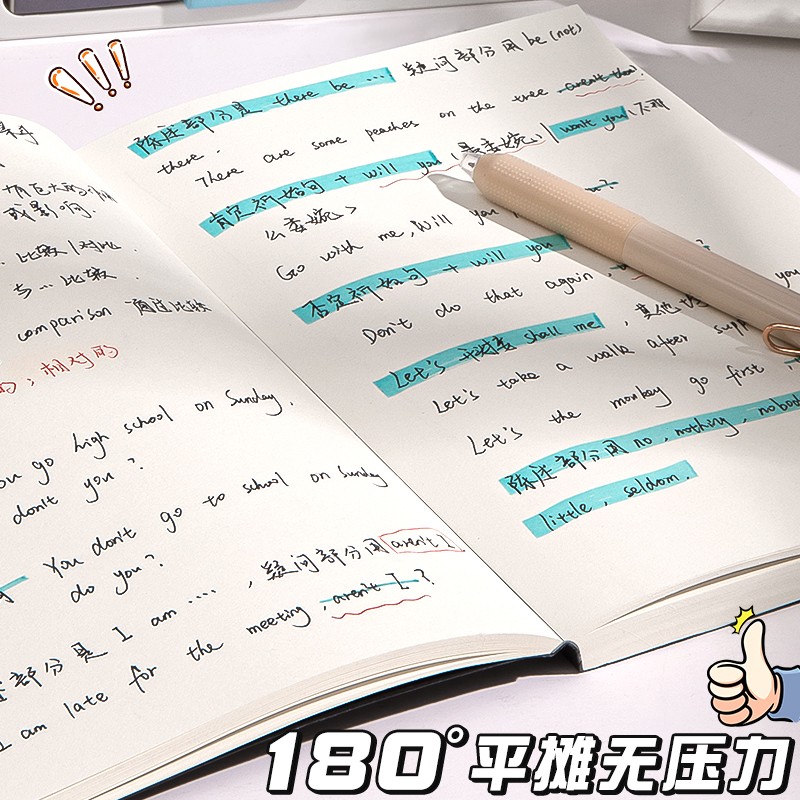 或影响.
比较/对比
与…比较
comparison 通过比较
的;相对的
you go high school on Sunday,
don't you?
You don't go to school on Sunday
do you?
部分是 I am ...., 疑问部分用 aren't I
I am late for the meeting, aren't I?
陈述部分是 there be ... 疑问部分用 be (not)
there.
There are some peaches on the tree aren't there?
肯定祈使句 + will you (是委婉) / won't you
Go with me, Will you
否定祈使句 + will you
Don't do that again
Let's 开头 shall me, 其他
Let's take a walk after
Let's the monkey go first
陈述部分用 no, nothing, nobody
little, seldom.
180°平摊无压力